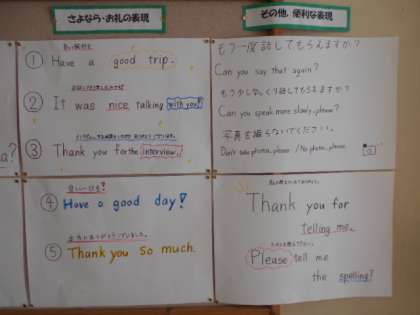 さよなら・お礼の表現
その他、便利な表現
良い旅行を
① Have a good trip.
② It was nice talking with you!
③ Thank you for the interview.
④ Have a good day!
本当にありがとうございました。
⑤ Thank you so much.
a?
もう一度話してもらえますか?
Can you say that again?
もう少しゆっくり話してもらえますか?
Can you speak more slowly, please?
写真を撮らないでください。
Don't take photos, please. / No photo, please.
Thank you for
telling me.
Please tell me
the spelling?